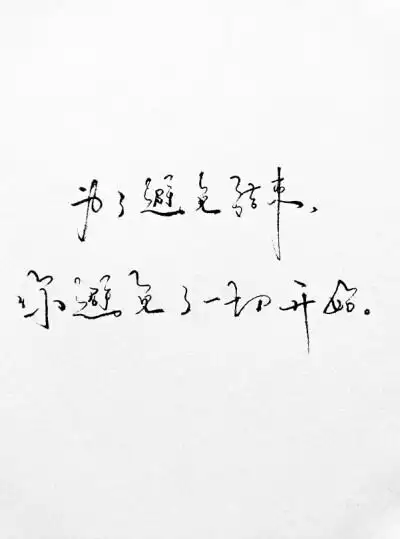 为了避免结束，
你避免了一切开始。